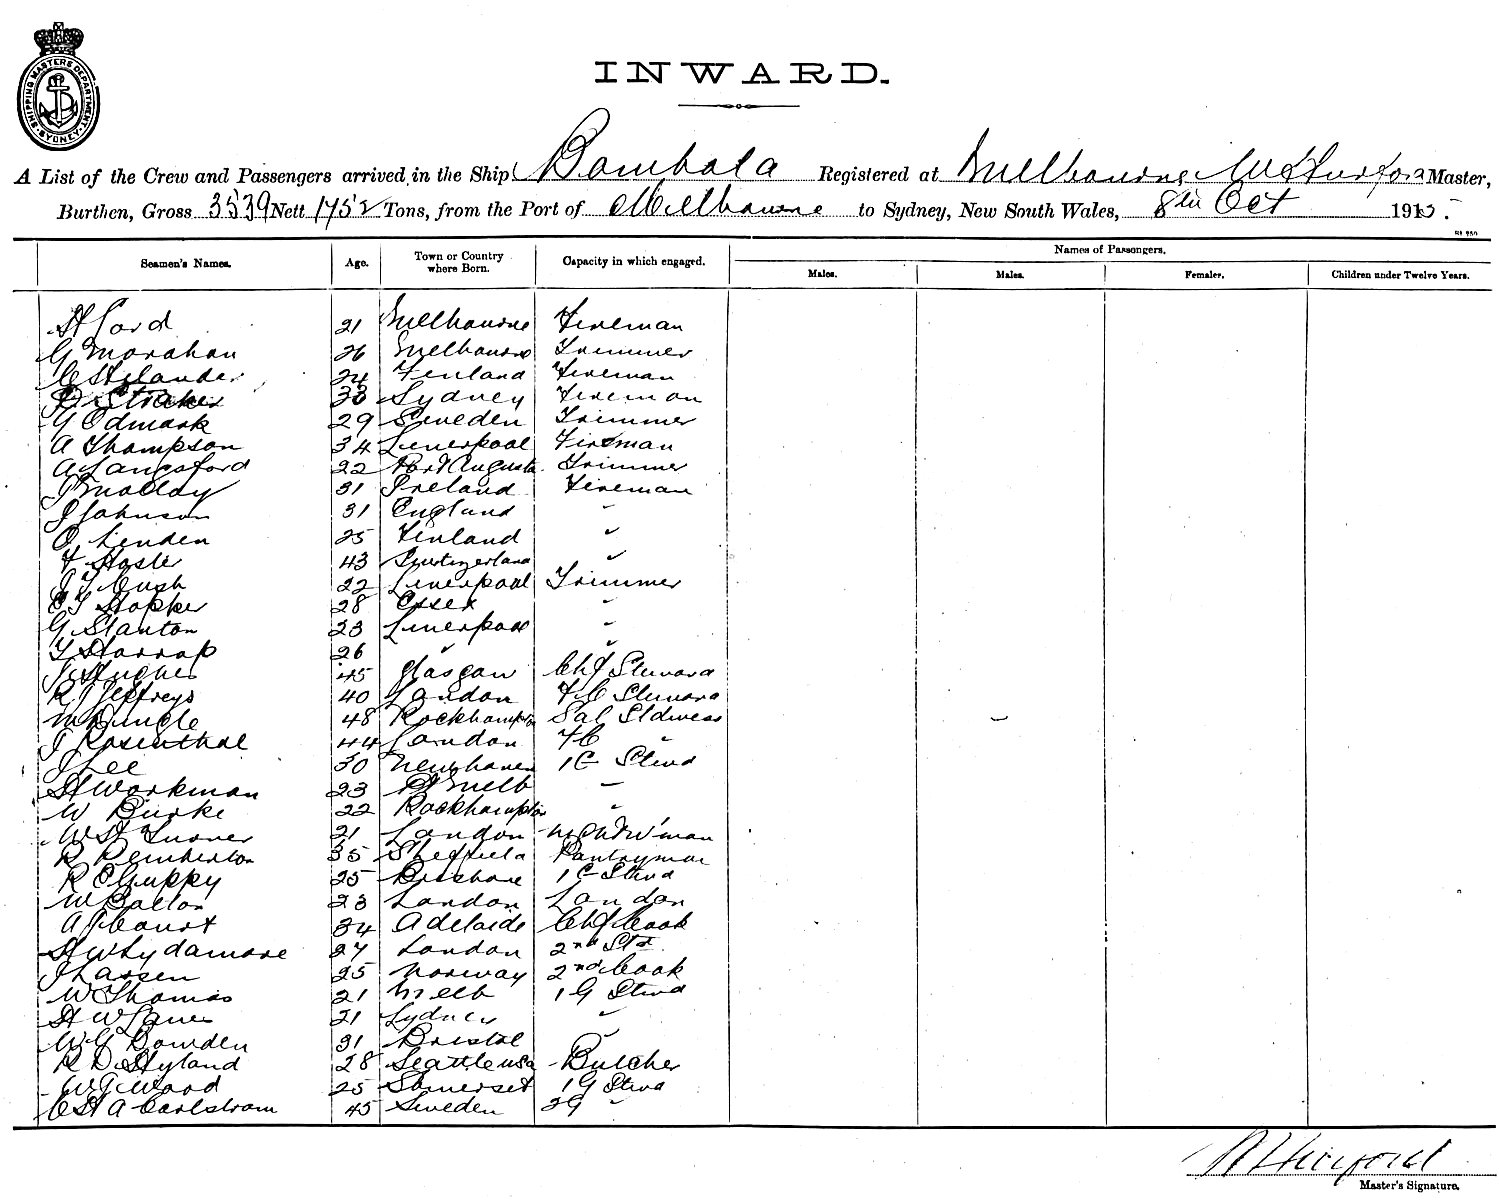 SHIPPING MASTERS DEPARTMENT. SYDNEY
INWARD.
A List of the Crew and Passengers arrived in the Ship Bombala Registered at Melbourne Master,
Burthen, Gross 3539 Nett 1752 Tons, from the Port of Melbourne to Sydney, New South Wales, 8th Oct 191
Seamen's Names. Age. Town or Country where Born. Capacity in which engaged. Names of Passengers.
Males. Males. Females. Children under Twelve Years.
H Cord 21 Melbourne Fireman
G Monahan 26 Melbourne Trimmer
C Helander 24 Finland Fireman
Straker 33 Sydney Fireman
G Odmark 29 Sweden Trimmer
A Thompson 34 Liverpool Fireman
A Langsford 22 Port Augusta Trimmer
J Molloy 31 Ireland Fireman
J Johnson 31 England "
O Linden 25 Finland "
F Hasler 43 Switzerland "
J T Cush 22 Liverpool Trimmer
E J Stopher 28 Essex "
G Stanton 23 Liverpool "
T Harrap 26 " "
J Hughes 45 Glasgow Chf Steward
R J Jeffreys 40 London F C Steward
M Dingle 48 Rockhampton Sal Stdwess
J Rosenthal 44 London F C "
J Lee 30 Newhaven 1 C Stwd
H Workman 23 Pt Melb "
W Burke 22 Rockhampton "
W H Turner 21 London Night W'man
R Pemberton 35 Sheffield Pantryman
R Chuppy 25 Brisbane 1 C Stwd
W Bolton 23 London London
A J Court 34 Adelaide Chf Cook
H W Lydamore 27 London 2nd Std
J Larsen 25 Norway 2nd Cook
W Thomas 21 Melb 1 G Stwd
H W Jones 21 Sydney "
W G Bowden 31 Bristol "
R D Hyland 28 Seattle USA Butcher
W G Wood 25 Somerset 1 G Stwd
C H A Carlstrom 45 Sweden 2 G "
Master's Signature.